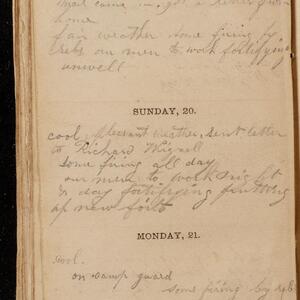 mail came in, got a letter from
home
fair weather some firing by
rebs our men to work fortifying
unwell
SUNDAY, 20.
cool, pleasant weather, sent letter
to Richard
some firing all day
our men to work night
& day fortifying
of new forts
MONDAY, 21.
cool.
on camp guard
some firing by rebs